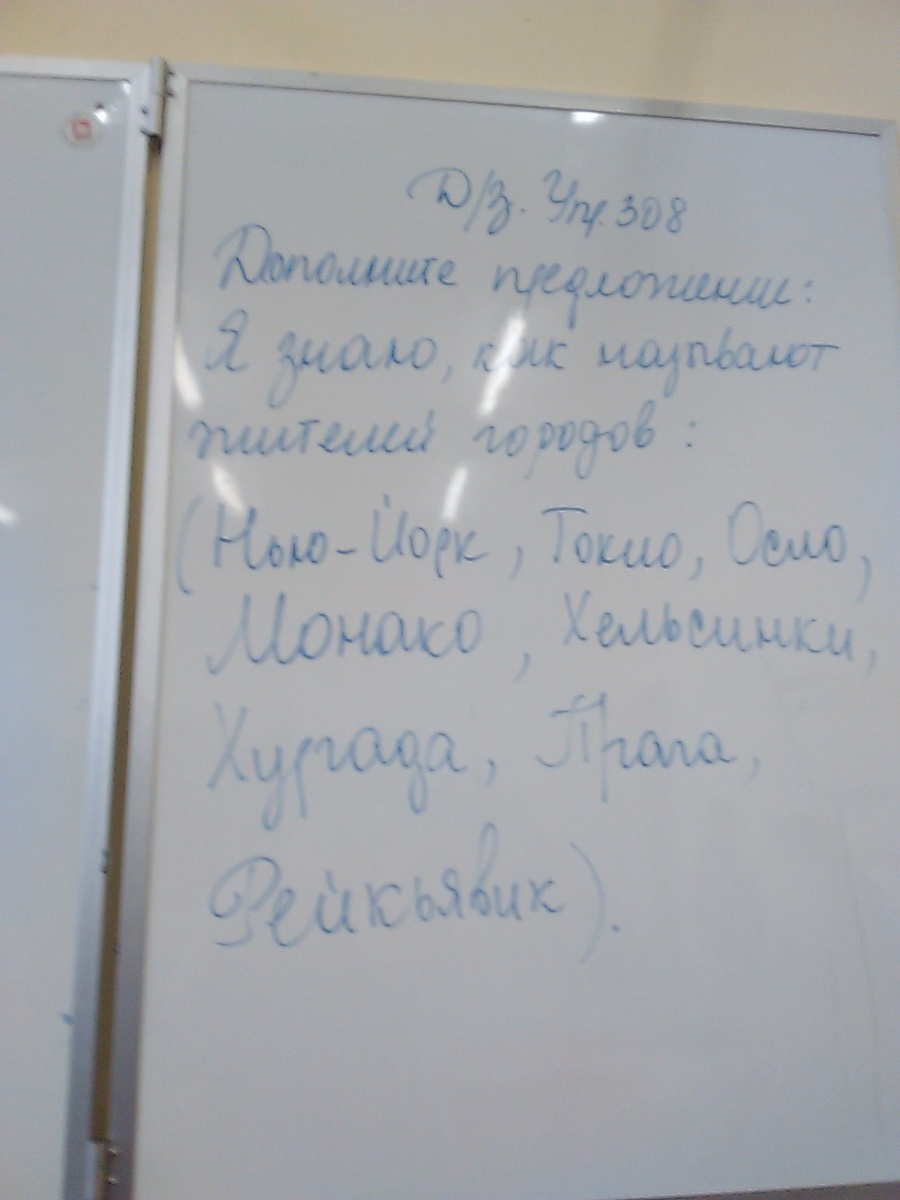 Д/з. Упр. 308
Дополните предложение:
Я знаю, как называют
жителей городов:
(Нью-Йорк, Токио, Осло,
Монако, Хельсинки,
Хургада, Прага,
Рейкьявик).